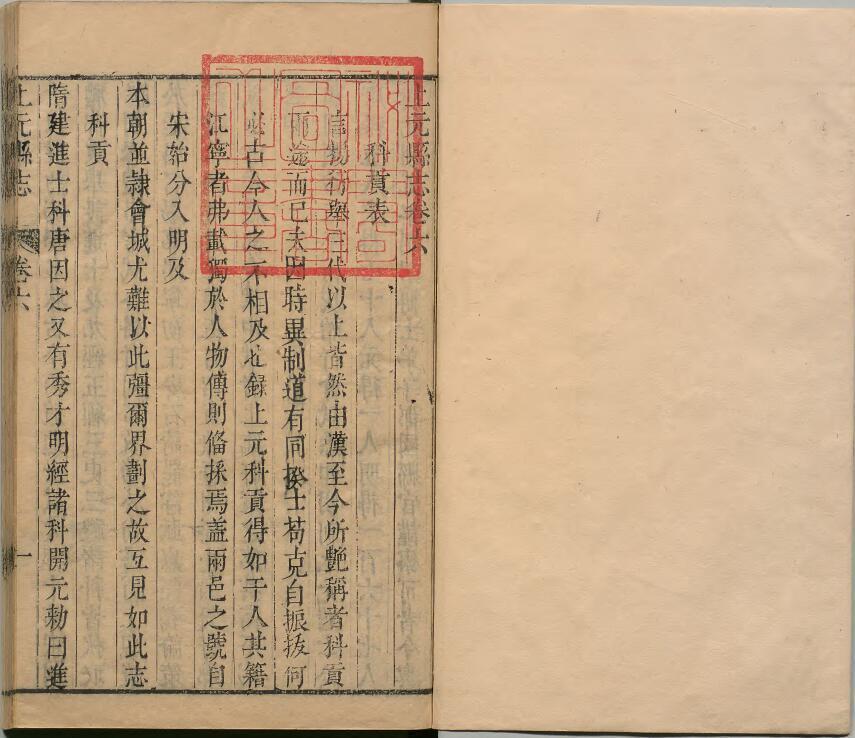 上元縣志卷六
科貢表
言揚行舉三代以上皆然由漢至今所艷稱者科貢
兩途而已夫因時異制道有同揆士苟克自振拔何
必古今人之不相及也錄上元科貢得如干人其籍
江寧者弗載獨於人物傳則俻採焉蓋兩邑之號自
宋始分入明及
本朝並隷會城尤難以此彊爾界劃之故互見如此志
科貢
隋建進士科唐因之又有秀才明經諸科開元勅曰進
上元縣志 卷六 一